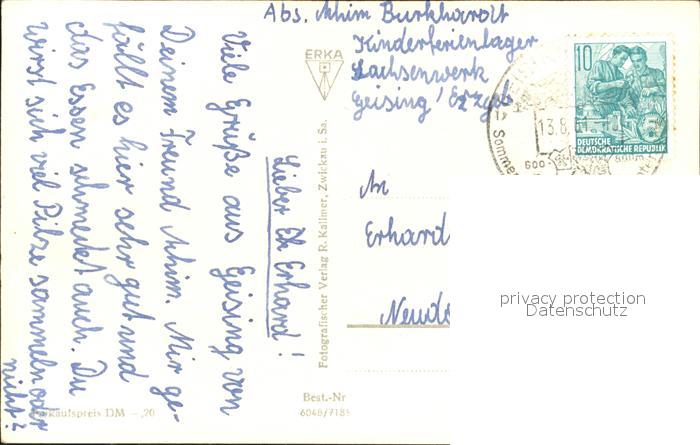 Abs. Achim Burkhardt
Kinderferienlager
Sachsenwerk
Geising / Erzgeb.
ERKA
10
5
DEUTSCHE
DEMOKRATISCHE REPUBLIK
13.8.
Sommer
600
800m
An
Erhard
privacy protection
Datenschutz
Lieber Erhard!
Viele Grüße aus Geising von
Deinem Freund Achim. Mir ge-
fällt es hier sehr gut und
das Essen schmeckt auch. Du
wirst sich viel Pilze sammeln oder
nicht?
Fotografischer Verlag R. Kallmer, Zwickau i. Sa.
Best.-Nr
6048/7185
Verkaufspreis DM -,20